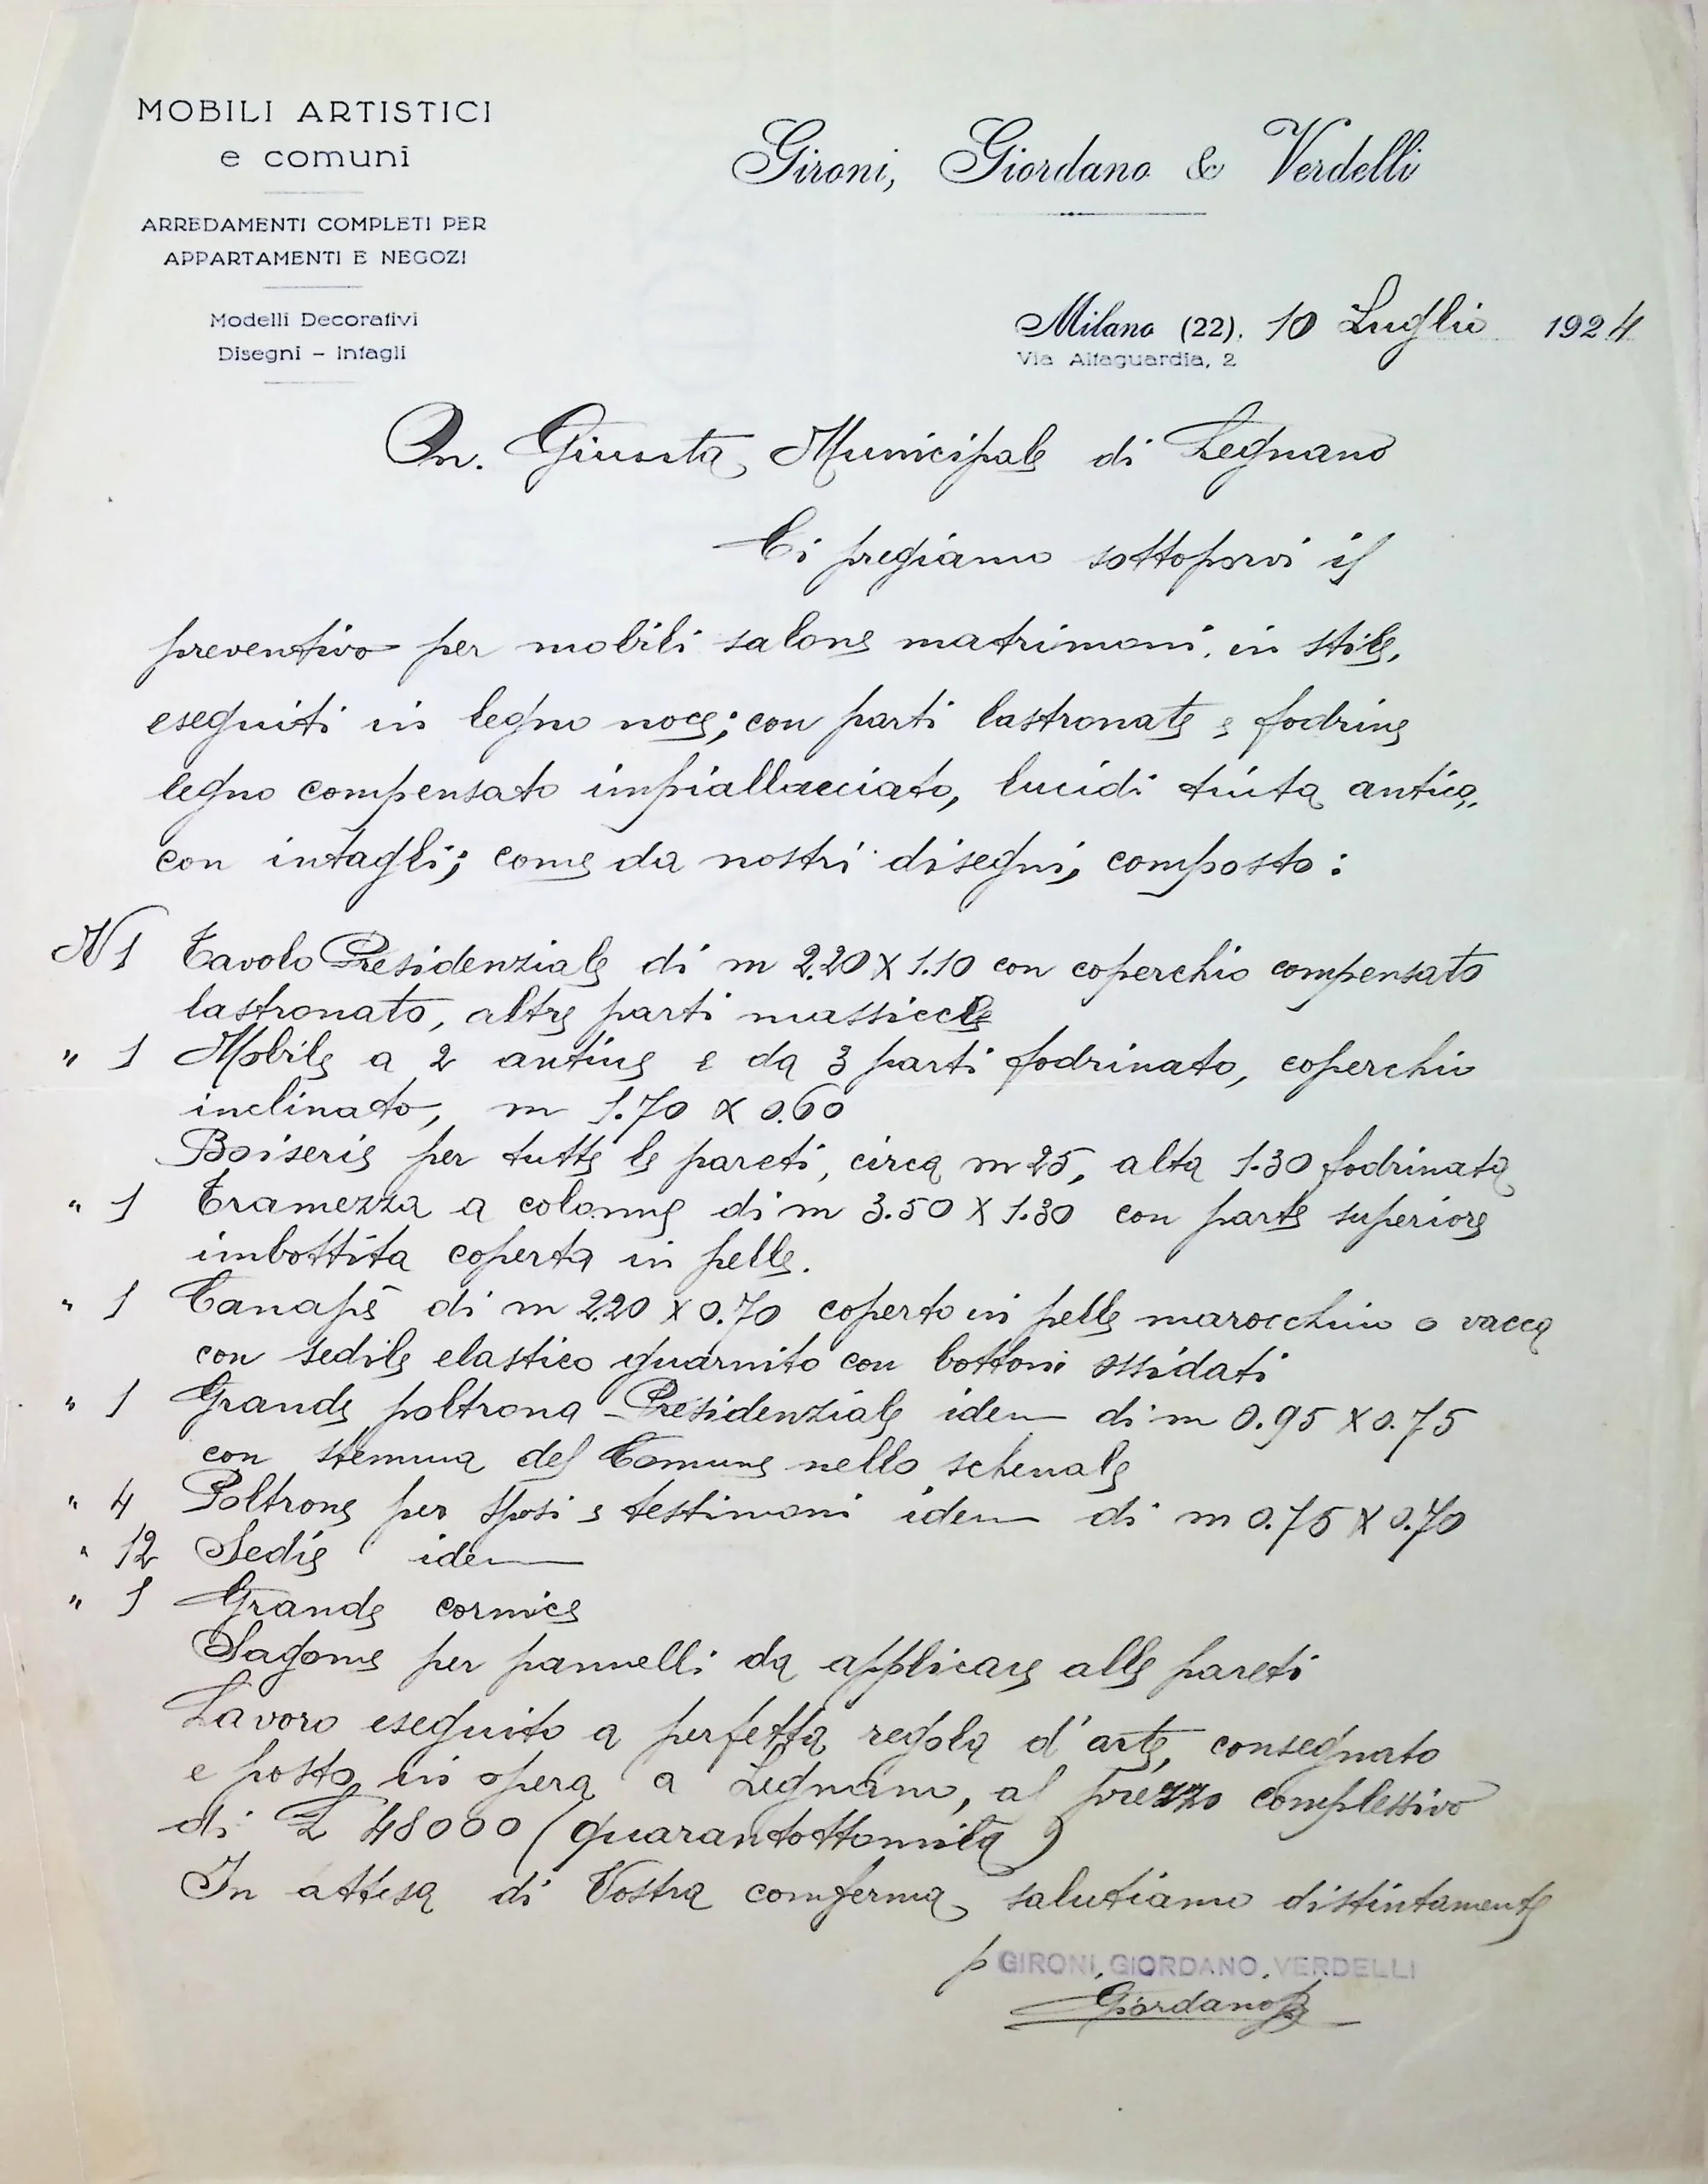 MOBILI ARTISTICI
e comuni
ARREDAMENTI COMPLETI PER
APPARTAMENTI E NEGOZI
Modelli Decorativi
Disegni – Intagli
Gironi, Giordano & Verdelli
Milano (22), 10 Luglio 1924
Via Altaguardia, 2
On. Giunta Municipale di Legnano
Ci pregiamo sottoporvi il
preventivo per mobili salone matrimoni, in stile,
eseguiti in legno noce; con parti lastronate e fodrine
legno compensato impiallacciato, lucidi tinta antica,
con intagli; come da nostri disegni, composto:
N 1 Tavolo Presidenziale di m 2.20 X 1.10 con coperchio compensato
lastronato, altre parti massicce
" 1 Mobile a 2 antine e da 3 parti fodrinato, coperchio
inclinato, m 1.70 X 0.60
Boiserie per tutte le pareti, circa m 25, alta 1.30 fodrinata
" 1 Tramezza a colonne di m 3.50 X 1.30 con parte superiore
imbottita coperta in pelle.
" 1 Canapè di m 2.20 X 0.70 coperto in pelle marocchino o vacca
con sedile elastico guarnito con bottoni ossidati
" 1 Grande poltrona Presidenziale idem di m 0.95 X 0.75
con stemma del Comune nello schenale
" 4 Poltrone per sposi e testimoni idem di m 0.75 X 0.70
" 12 Sedie idem
" 1 Grande cornice
Sagome per pannelli da applicare alle pareti
Lavoro eseguito a perfetta regola d'arte, consegnato
e posto in opera a Legnano, al prezzo complessivo
di £ 48000 (quarantottomila)
In attesa di Vostra comferma, salutiamo distintamente
p GIRONI, GIORDANO, VERDELLI
Giordano